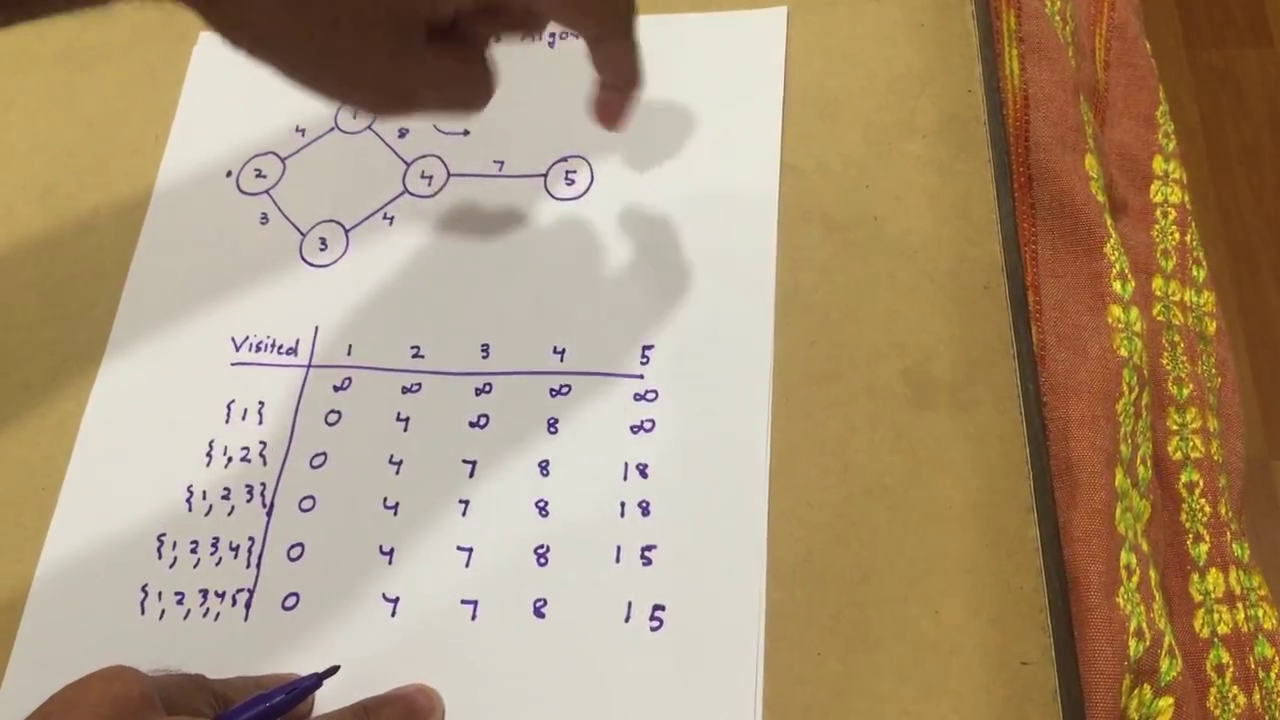 Algo
1
4 8
2 4 7 5
3 4
3
Visited 1 2 3 4 5
∞ ∞ ∞ ∞ ∞
{1} 0 4 ∞ 8 ∞
{1,2} 0 4 7 8 18
{1,2,3} 0 4 7 8 18
{1,2,3,4} 0 4 7 8 15
{1,2,3,4,5} 0 4 7 8 15